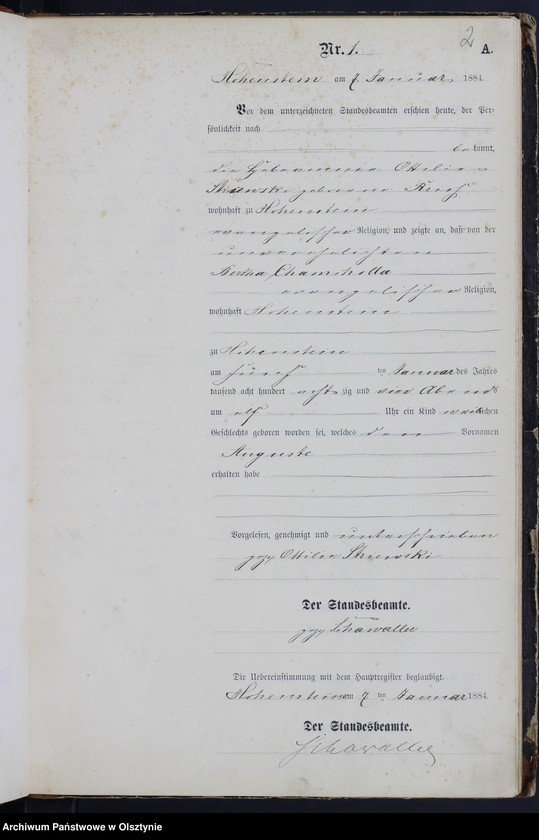 2
Nr. 1. A.
Hohenstein am 7 Januar 1884.
Vor dem unterzeichneten Standesbeamten erschien heute, der Per-
sönlichkeit nach
bekannt,
die Hebeamme Ottilie
geborene
wohnhaft zu Hohenstein
evangelischer Religion, und zeigte an, daß von der
unverehelichten
Bertha
evangelischer Religion,
wohnhaft Hohenstein
zu Hohenstein
am fünf ten Januar des Jahres
tausend acht hundert acht zig und vier Abends
um elf Uhr ein Kind weiblichen
Geschlechts geboren worden sei, welches den Vornamen
Auguste
erhalten habe
Vorgelesen, genehmigt und unterschrieben
gez Ottilie
Der Standesbeamte.
gez
Die Uebereinstimmung mit dem Hauptregister beglaubigt.
Hohenstein am 7 ten Januar 1884.
Der Standesbeamte.
Archiwum Państwowe w Olsztynie